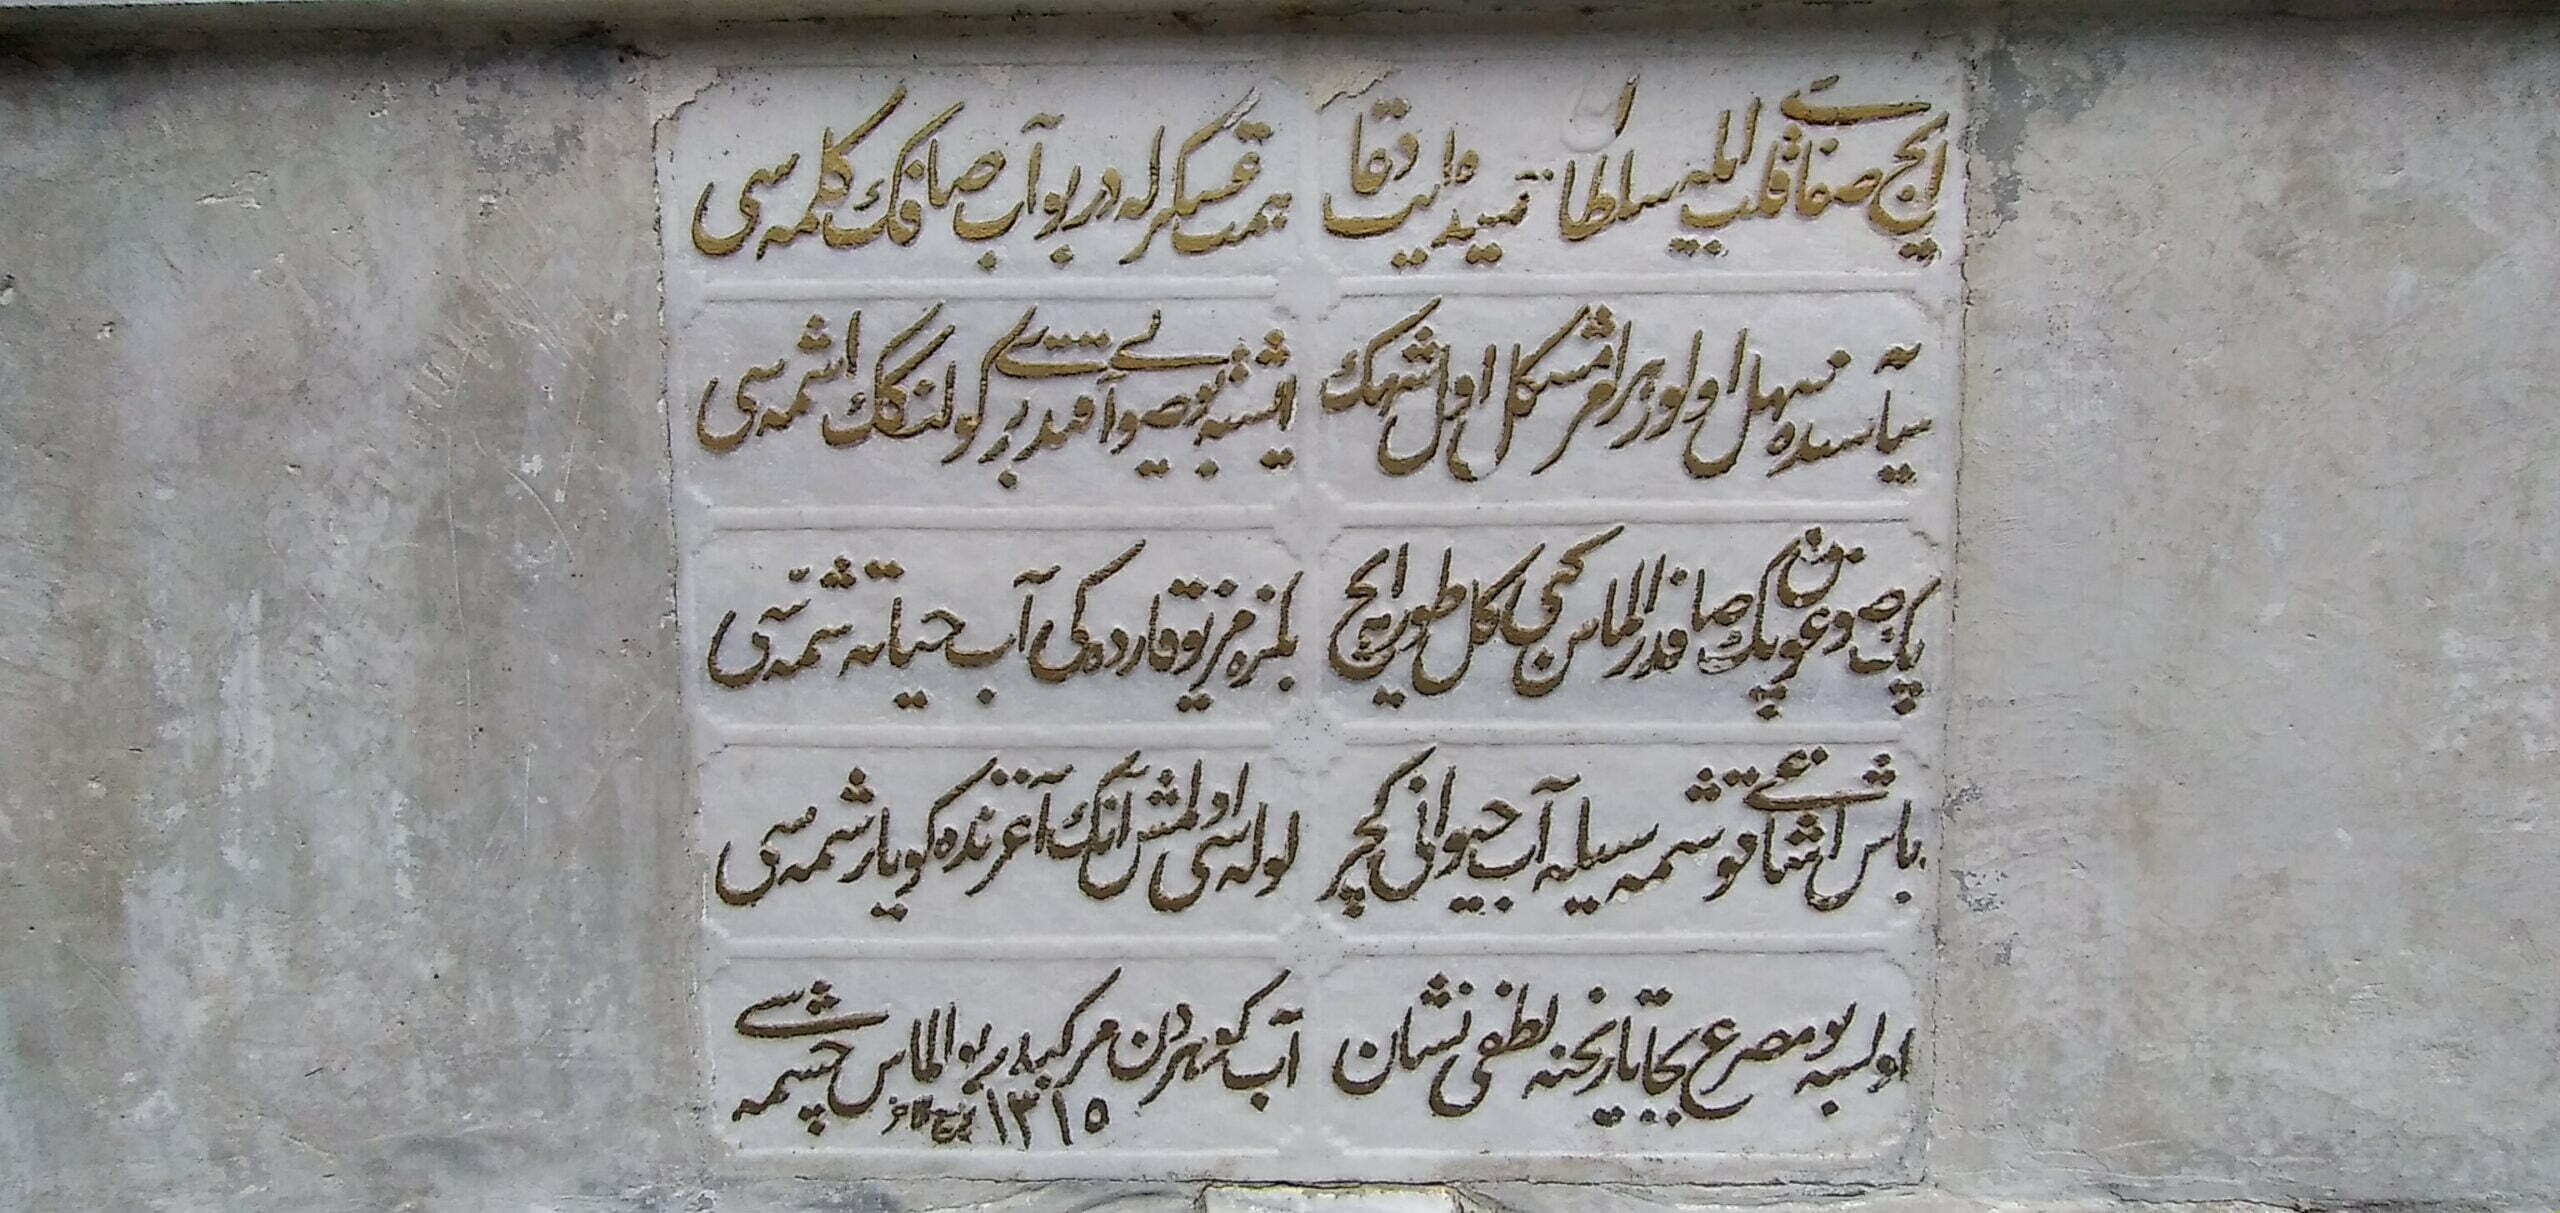 ایچ صفای قلب ایله سلطان حمیده ایت دعا
همت عسکرله در بو آب صافک کلمه سی
سایه سنده سهل اولور هر امر مشکل اول شهک
ایشته بو صو آفتی در بر کولنک اشمه سی
پک صوغوق پک صافدر الماس کبی کل طور ایچ
بکزه مز یوقارده کی آب حیاته شمه سی
باش اشاغی قوشمه سیله آب حیوانی کچر
لوله سی اولمش آنک آغزنده کویا رشمه سی
اولسه بو مصرع بجا تاریخنه لطفی نشان
آب کوهردن مرکبدر بو الماس چشمه سی
١٣١٥